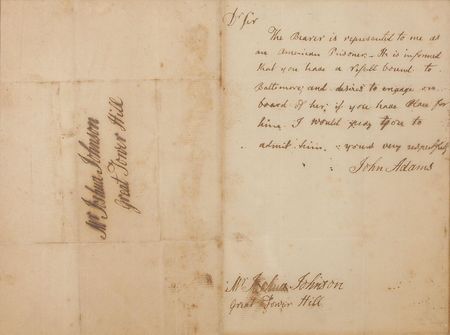 Mr Joshua Johnson
Great Tower Hill
Dr Sir
The Bearer is represented to me as
an American Prisoner.- He is informed
that you have a vessell bound to
Baltimore, and desires to engage on
board of her, if you have Place for
him. I would pray you to
admit him. yours very respectfully
John Adams
Mr Joshua Johnson
Great Tower Hill